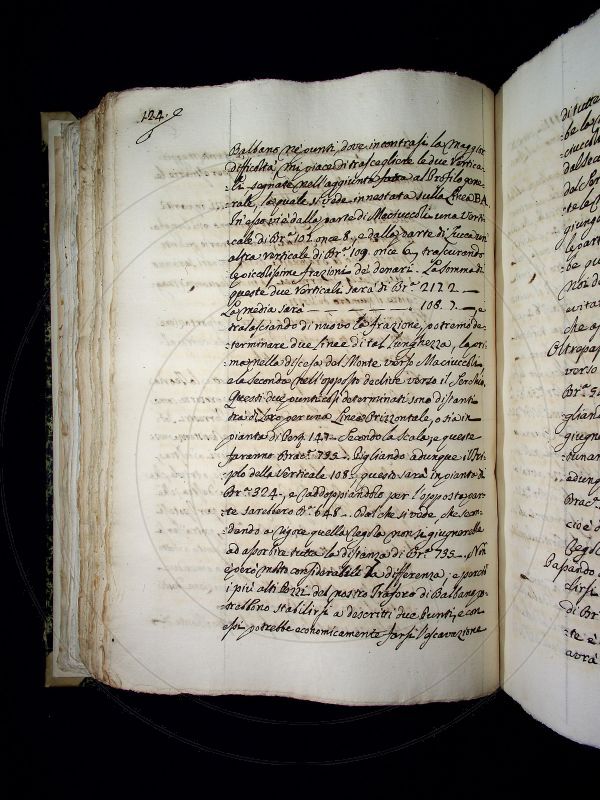 124.
Balbano ne' punti, dove incontrasi la maggior
difficoltà, mi piace di trascegliere le due Vertica-
li segnate nell'aggiunta al Profilo gene-
rale, le quale si vede innestata sulla Linea BA.
In essa vi è dalla parte di Maciuccoli una Verti-
cale di Br.ª 107. once 8., e dalla parte di Lucca un'
altra Verticale di Br.ª 109. once 6., trascurando
le piccolissime frazioni de' denari. La somma di
queste due Verticali sarà di Br.ª 217. 2. —
La media sarà — 108. 7. —, e
tralasciando di nuovo la frazione, potremo de-
terminare due linee di tal lunghezza, la pri-
ma nella discesa del Monte verso Maciuccoli,
e la seconda nell'opposto declive verso il Serchio.
Questi due punti così determinati sono distanti
tra di loro per una Linea Orizzontale, o sia in
pianta di Pert. 147. Secondo la Scala, e queste
faranno Brac.ª 735. Pigliando adunque il Tri-
plo della Verticale 108. questo sarà in pianta di
Br.ª 324., e raddoppiandolo per l'opposta par-
te sarebbero B.ª 648. Dal che si vede, che stan-
dando a rigore quella regola non si giugnerebbe
ad assorbire tutta la distanza di Br.ª 735. Non
è però molto considerabile la differenza, e perciò
i più alti Pozzi del nostro Traforo di Balbano po-
trebbono stabilirsi a descritti due Punti, e con
essi potrebbe economicamente farsi l'escavazione
di tutta
Oltrepass
verso
giugn
adung
Brac.ª
cioè d
Regola
Passando
di Br
avrà